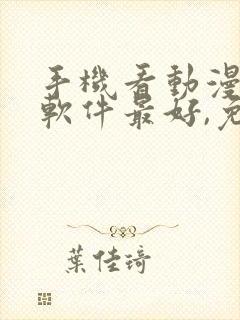 手機看動漫
軟件最好,免
葉佳琦